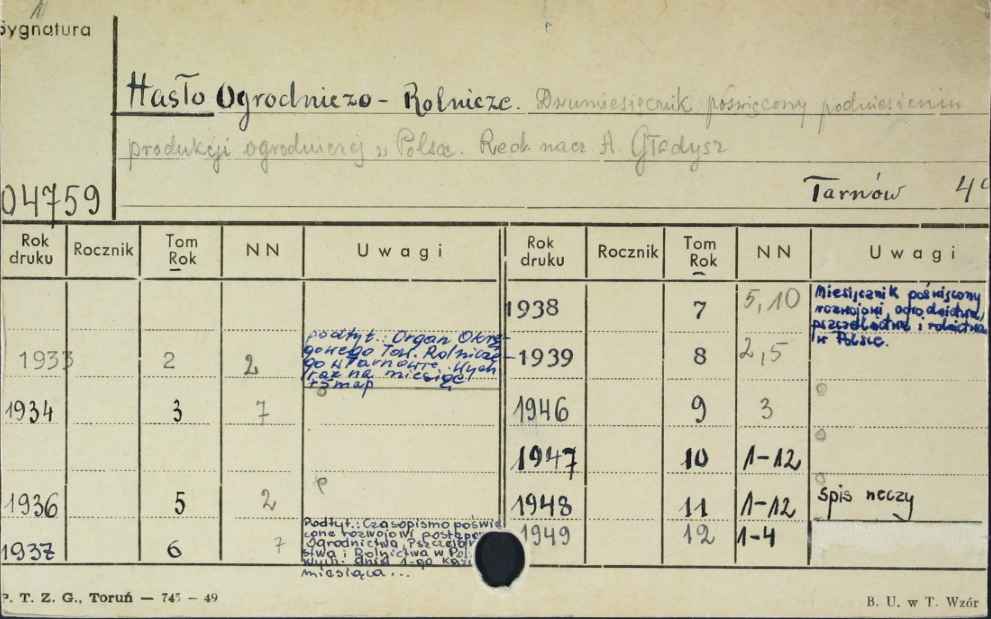 Sygnatura
Hasło Ogrodniczo - Rolnicze. Dwumiesięcznik poświęcony podniesieniu
produkcji ogrodniczej w Polsce. Red. nacz. A. Gładysz
04759
Tarnów 4°
Rok druku Rocznik Tom Rok NN Uwagi Rok druku Rocznik Tom Rok NN Uwagi
1933 2 2 podtyt.: Organ Okrę-
gowego Tow. Rolnicze-
go w Tarnowie. Wych
raz na miesiąc
1934 3 7
1936 5 2
1937 6 7 Podtyt.: Czasopismo poświę
cone rozwojowi
stwa i Rolnictwa w Pol.
wych. dnia 1-go
miesiąca...
1938 7 5, 10 Miesięcznik poświęcony
rozwojowi ogrodnictwa,
pszczelnictwa i rolnictwa
w Polsce.
1939 8 2, 5
1946 9 3
1947 10 1-12
1948 11 1-12 Spis rzeczy
1949 12 1-4
P. T. Z. G., Toruń — 745 — 49
B. U. w T. Wzór